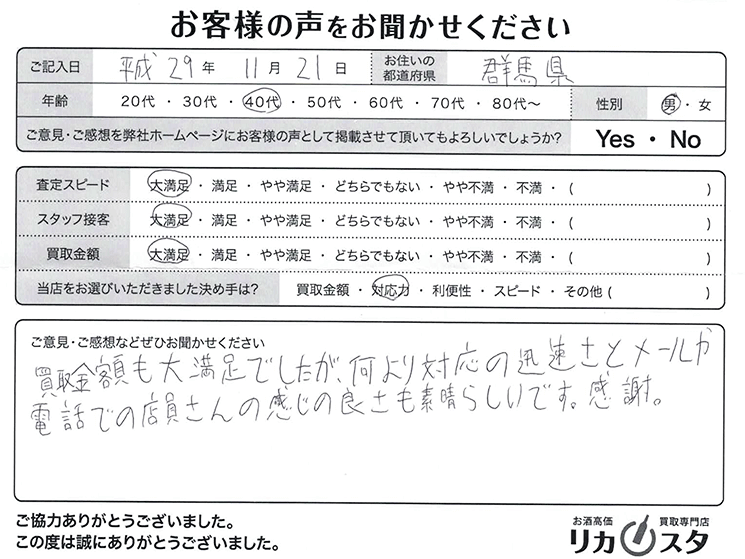 お客様の声をお聞かせください
ご記入日 平成 29 年 11 月 21 日 お住いの都道府県 群馬県
年齢 20代 ・ 30代 ・ 40代 ・ 50代 ・ 60代 ・ 70代 ・ 80代〜 性別 男 ・ 女
ご意見・ご感想を弊社ホームページにお客様の声として掲載させて頂いてもよろしいでしょうか? Yes ・ No
査定スピード 大満足 ・ 満足 ・ やや満足 ・ どちらでもない ・ やや不満 ・ 不満 ・ ( )
スタッフ接客 大満足 ・ 満足 ・ やや満足 ・ どちらでもない ・ やや不満 ・ 不満 ・ ( )
買取金額 大満足 ・ 満足 ・ やや満足 ・ どちらでもない ・ やや不満 ・ 不満 ・ ( )
当店をお選びいただきました決め手は? 買取金額 ・ 対応力 ・ 利便性 ・ スピード ・ その他 ( )
ご意見・ご感想などぜひお聞かせください
買取金額も大満足でしたが、何より対応の迅速さとメールか
電話での店員さんの感じの良さも素晴らしいです。感謝。
ご協力ありがとうございました。
この度は誠にありがとうございました。
お酒高価 買取専門店
リカスタ